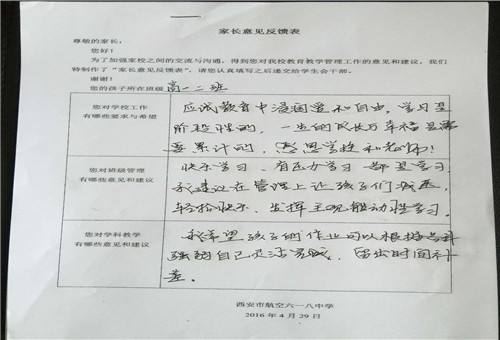 家长意见反馈表
尊敬的家长：
您好！
为了加强家校之间的交流与沟通，得到您对我校教育教学管理工作的意见和建议，我们
特制作了“家长意见反馈表”，请您认真填写之后递交给学生会干部。
谢谢！
您的孩子所在班级 高一二班
您对学校工作
有哪些要求与希望
应试教育中浸润爱和自由，学习是
阶段性的，一生的成长万幸福是需
要累计的，感恩学校和老师！
您对班级管理
有哪些意见和建议
快乐学习，有压力学习 都是学习
我建议在管理上让孩子们减压，
轻松快乐，发挥主观能动性学习。
您对学科教学
有哪些意见和建议
我希望孩子的作业可以根据
强弱自己是否完成，留出时间补
差。
西安市航空六一八中学
2016 年 4 月 29 日